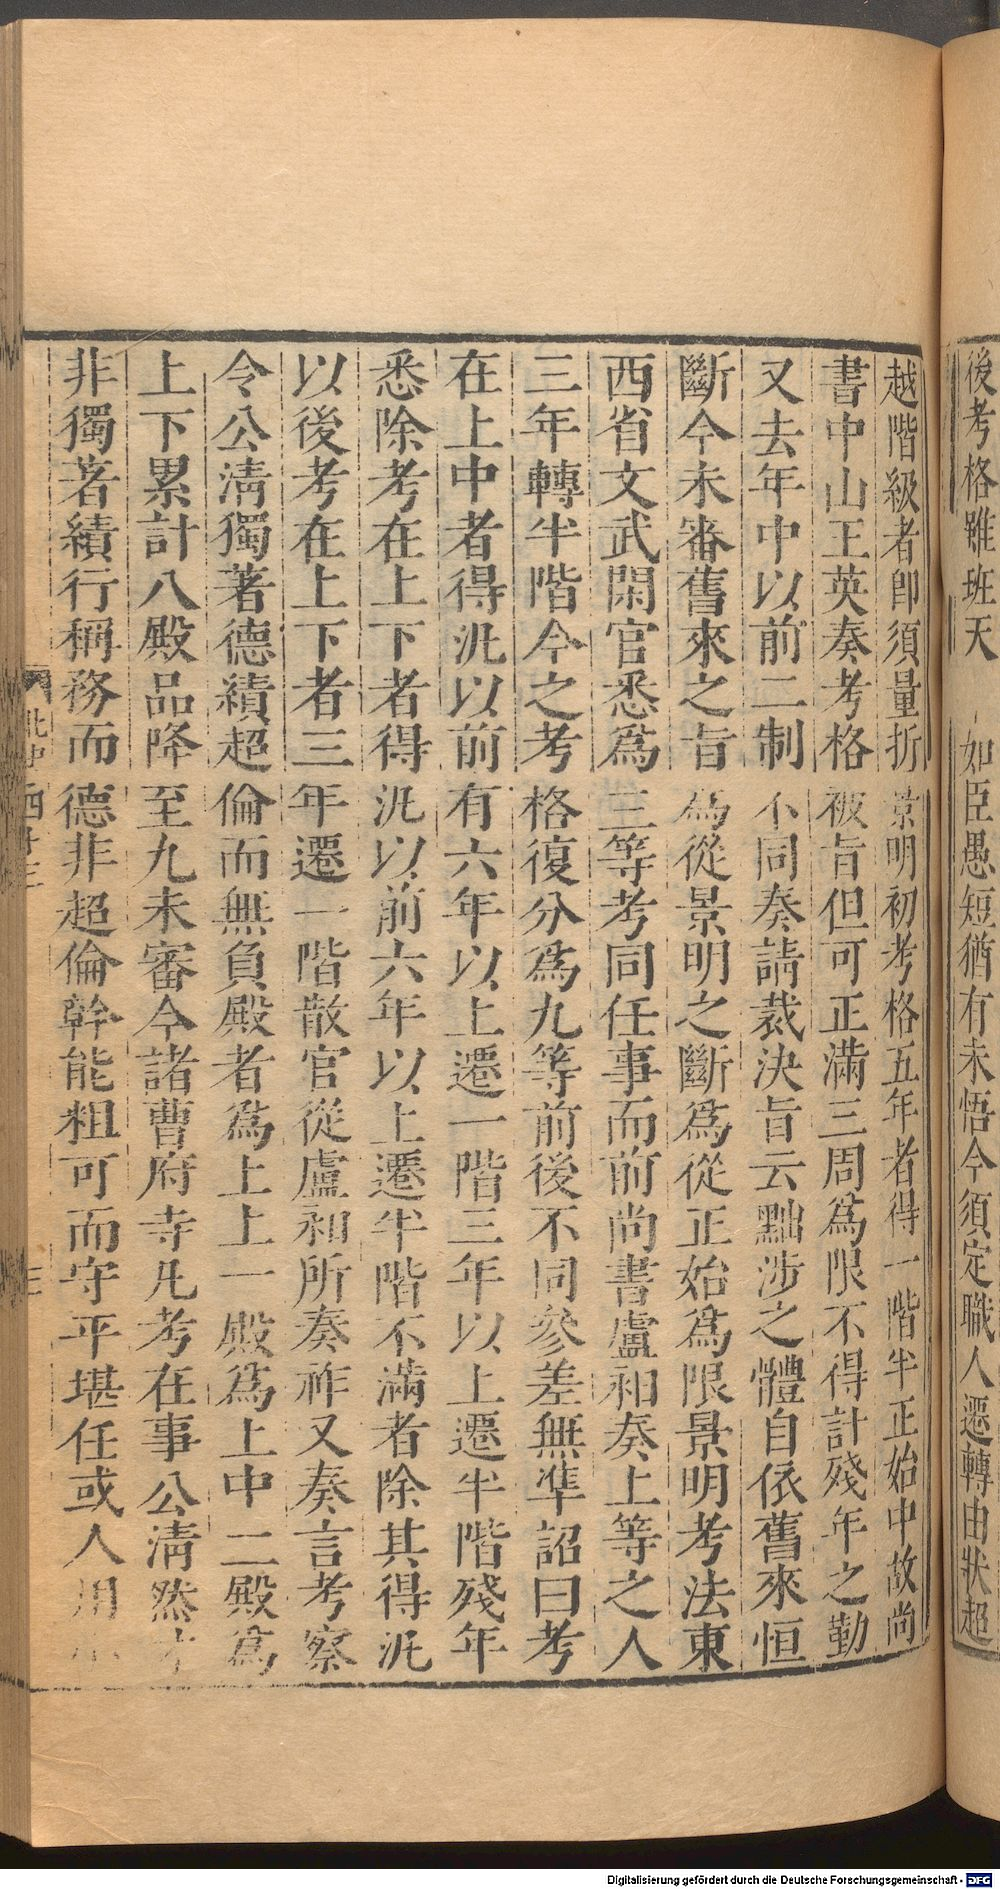 後考格雖班天　如臣愚短猶有未悟今須定職人遷轉由狀超
越階級者即須量折景明初考格五年者得一階半正始中故尚
書中山王英奏考格被旨但可正滿三周爲限不得計殘年之勤
又去年中以前二制不同奏請裁決旨云黜涉之體自依舊來恒
斷今未審舊來之旨爲從景明之斷爲從正始爲限景明考法東
西省文武閑官悉爲三等考同任事而前尚書盧昶奏上等之人
三年轉半階今之考格復分爲九等前後不同參差無準詔曰考
在上中者得汎以前有六年以上遷一階三年以上遷半階殘年
悉除考在上下者得汎以前六年以上遷半階不滿者除其得汎
以後考在上下者三年遷一階散官從盧昶所奏祚又奏言考察
令公清獨著德績超倫而無負殿者爲上上一殿爲上中二殿爲
上下累計八殿品降至九未審今諸曹府寺凡考在事公清然才
非獨著績行稱務而德非超倫幹能粗可而守平堪任或人用小
北史四十三
三
Digitalisierung gefördert durch die Deutsche Forschungsgemeinschaft - DFG